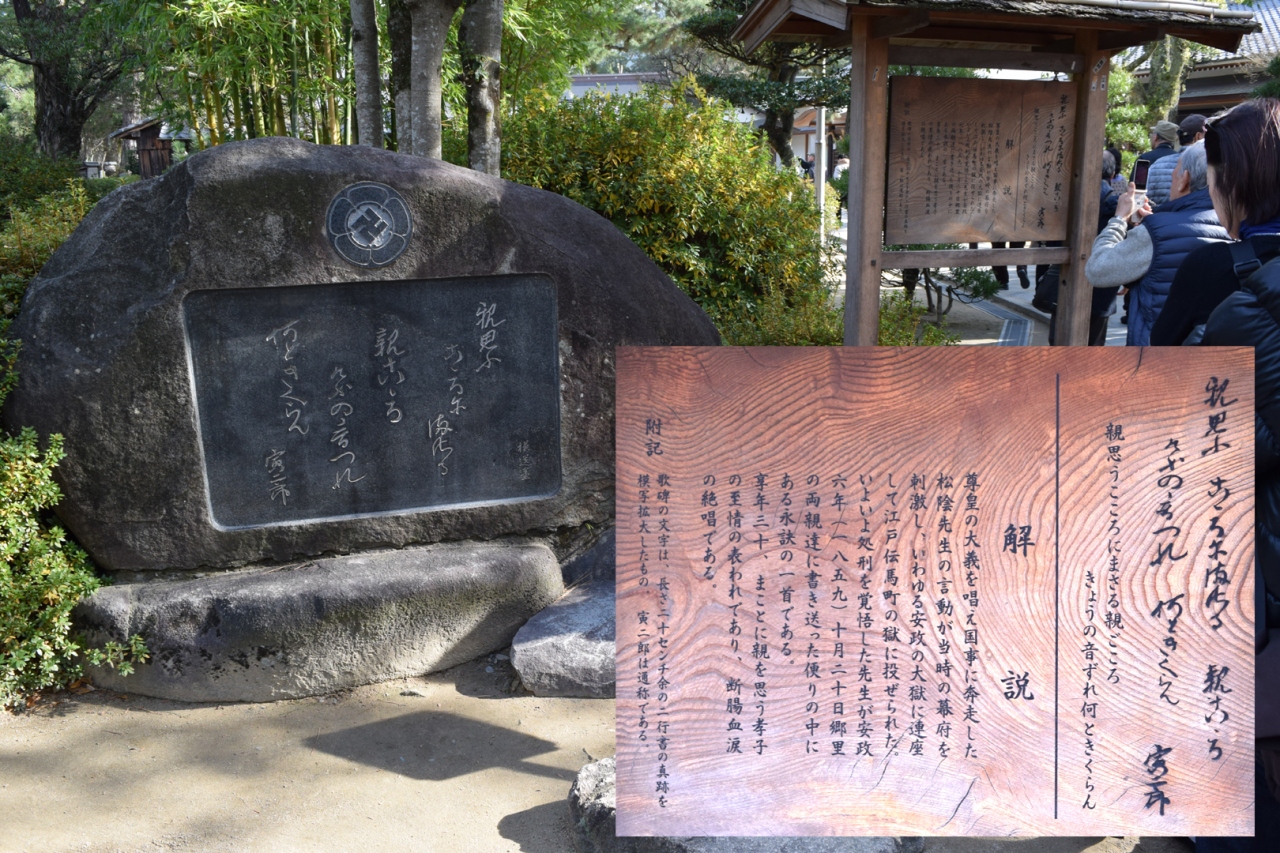 親思ふ
こころにまさる
親ごころ
けふの音つれ
何ときくらん
寅二郎
親思ふこころにまさる 親ごころ
けふの音つれ 何ときくらん 寅二郎
親思うこころにまさる親ごころ
きょうの音ずれ何ときくらん
解 説
尊皇の大義を唱え国事に奔走した
松陰先生の言動が当時の幕府を
刺激し、いわゆる安政の大獄に連座
して江戸伝馬町の獄に投ぜられた。
いよいよ処刑を覚悟した先生が安政
六年(一八五九)十月二十日郷里
の両親達に書き送った便りの中に
ある永訣の一首である。
享年三十、まことに親を思う孝子
の至情の表われであり、断腸血涙
の絶唱である。
附記
歌碑の文字は、長さ二十センチ余の一行書の真跡を
模写拡大したもの 寅二郎は通称である。